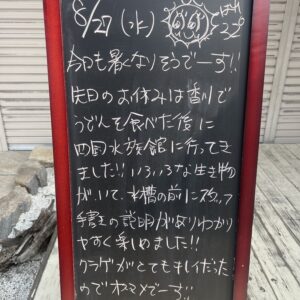 8/27 (水)
今日も暑くなりそうでーす!!
先日のお休みは香川で
うどんを食べた後に
四国水族館に行ってき
ました!! いろいろな生き物
がいて、水槽の前にスタッフ
手書きの説明がありわかり
やすく楽しめました!!
クラゲがとてもキレイだった
のでオススメでーす!!